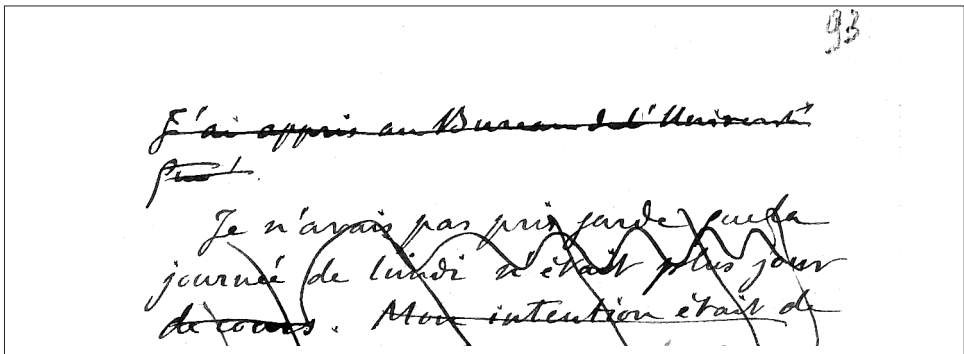 93
J'ai appris au Bureau de l'Université
que
Je n'avais pas pris garde que la
journée de lundi n'était plus jour
de cours. Mon intention était de